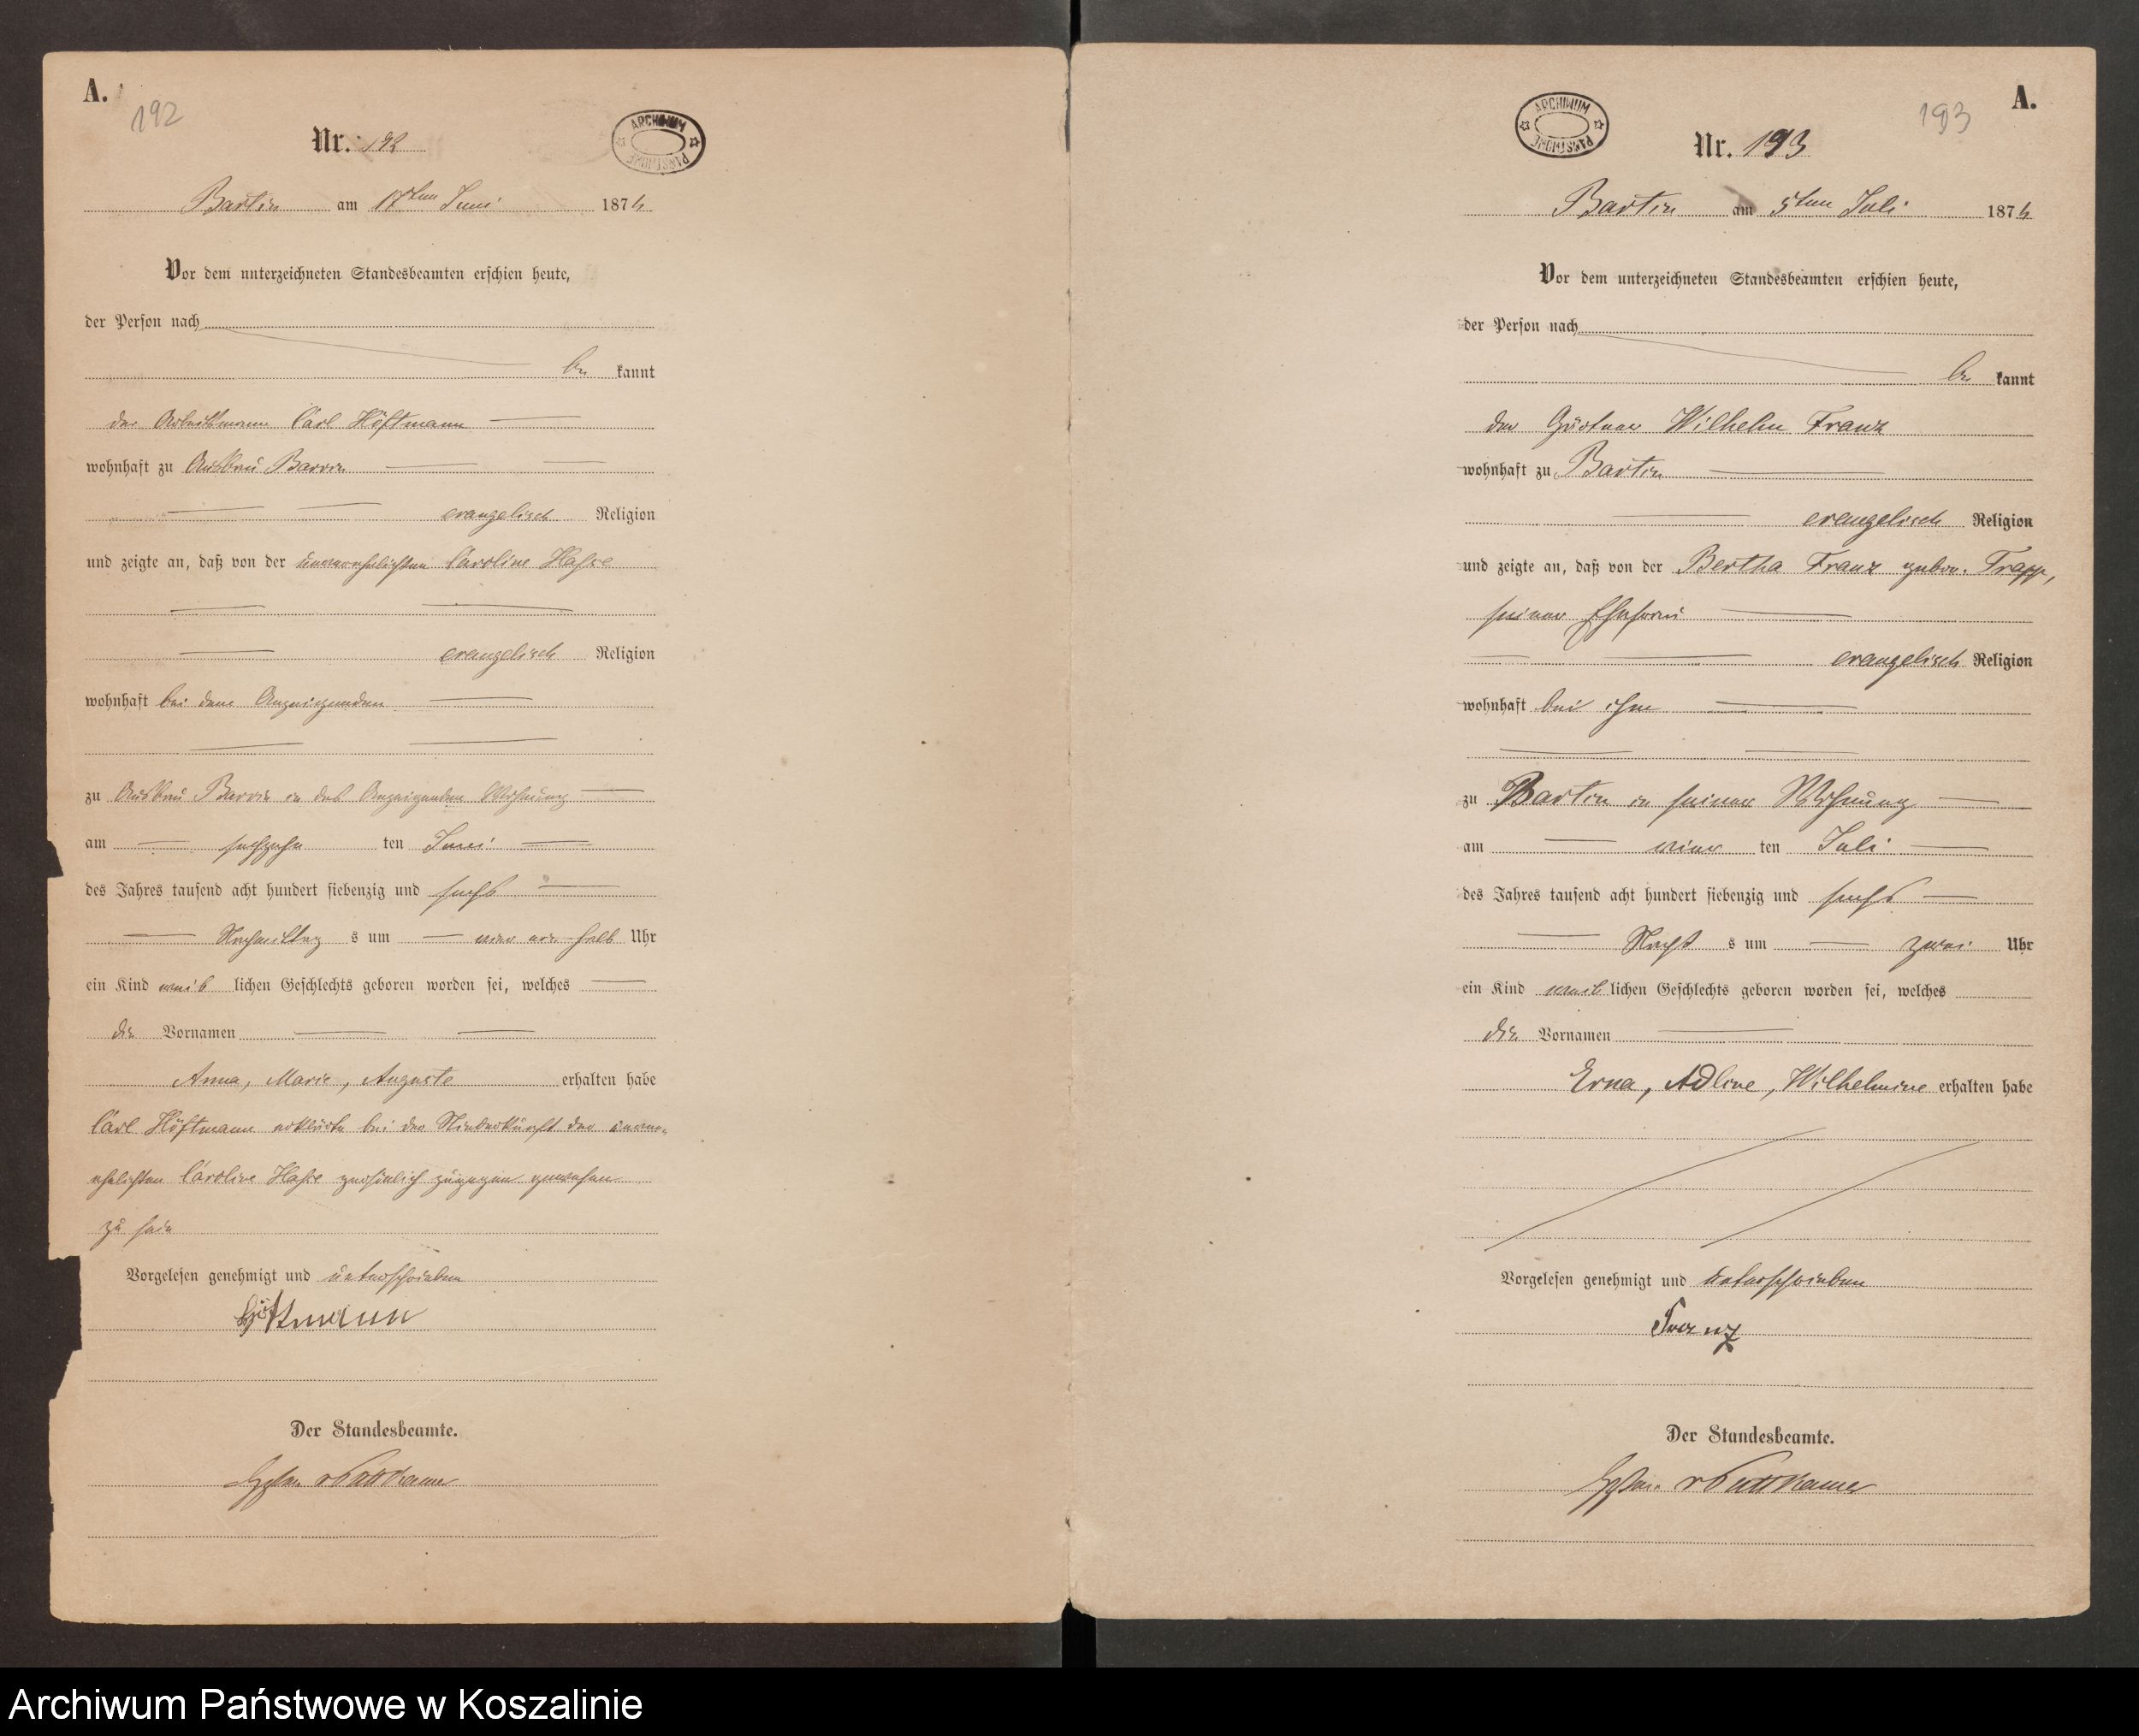 A.
192
Nr. 192
ARCHIWUM PAŃSTWOWE
Bartin am 17ten Juni 1876
Vor dem unterzeichneten Standesbeamten erschien heute,
der Person nach
be kannt
der Arbeitsmann Carl Höftmann
wohnhaft zu Ausbau Barvin
evangelisch Religion
und zeigte an, daß von der unverehelichten Caroline Hasse
evangelisch Religion
wohnhaft bei dem Anzeigenden
zu Ausbau Barvin in des Anzeigenden Wohnung
am sechzehn ten Juni
des Jahres tausend acht hundert siebenzig und sechs
Nachmittag s um vier ein halb Uhr
ein Kind weib lichen Geschlechts geboren worden sei, welches
die Vornamen
Anna, Marie, Auguste erhalten habe
Carl Höftmann erklärte bei der Niederkunft der unver-
ehelichten Caroline Hasse persönlich zugegen gewesen
zu sein
Vorgelesen genehmigt und unterschrieben
Höftmann
Der Standesbeamte.
v Puttkamer
A.
193
ARCHIWUM PAŃSTWOWE
Nr. 193
Bartin am 5ten Juli 1876
Vor dem unterzeichneten Standesbeamten erschien heute,
der Person nach
be kannt
der Gärtner Wilhelm Franz
wohnhaft zu Bartin
evangelisch Religion
und zeigte an, daß von der Bertha Franz gebor. Trapp,
seiner Ehefrau
evangelisch Religion
wohnhaft bei ihm
zu Bartin in seiner Wohnung
am vier ten Juli
des Jahres tausend acht hundert siebenzig und sechs
Nacht s um zwei Uhr
ein Kind weib lichen Geschlechts geboren worden sei, welches
die Vornamen
Erna, Adline, Wilhelmine erhalten habe
Vorgelesen genehmigt und unterschrieben
Franz
Der Standesbeamte.
v Puttkamer
Archiwum Państwowe w Koszalinie